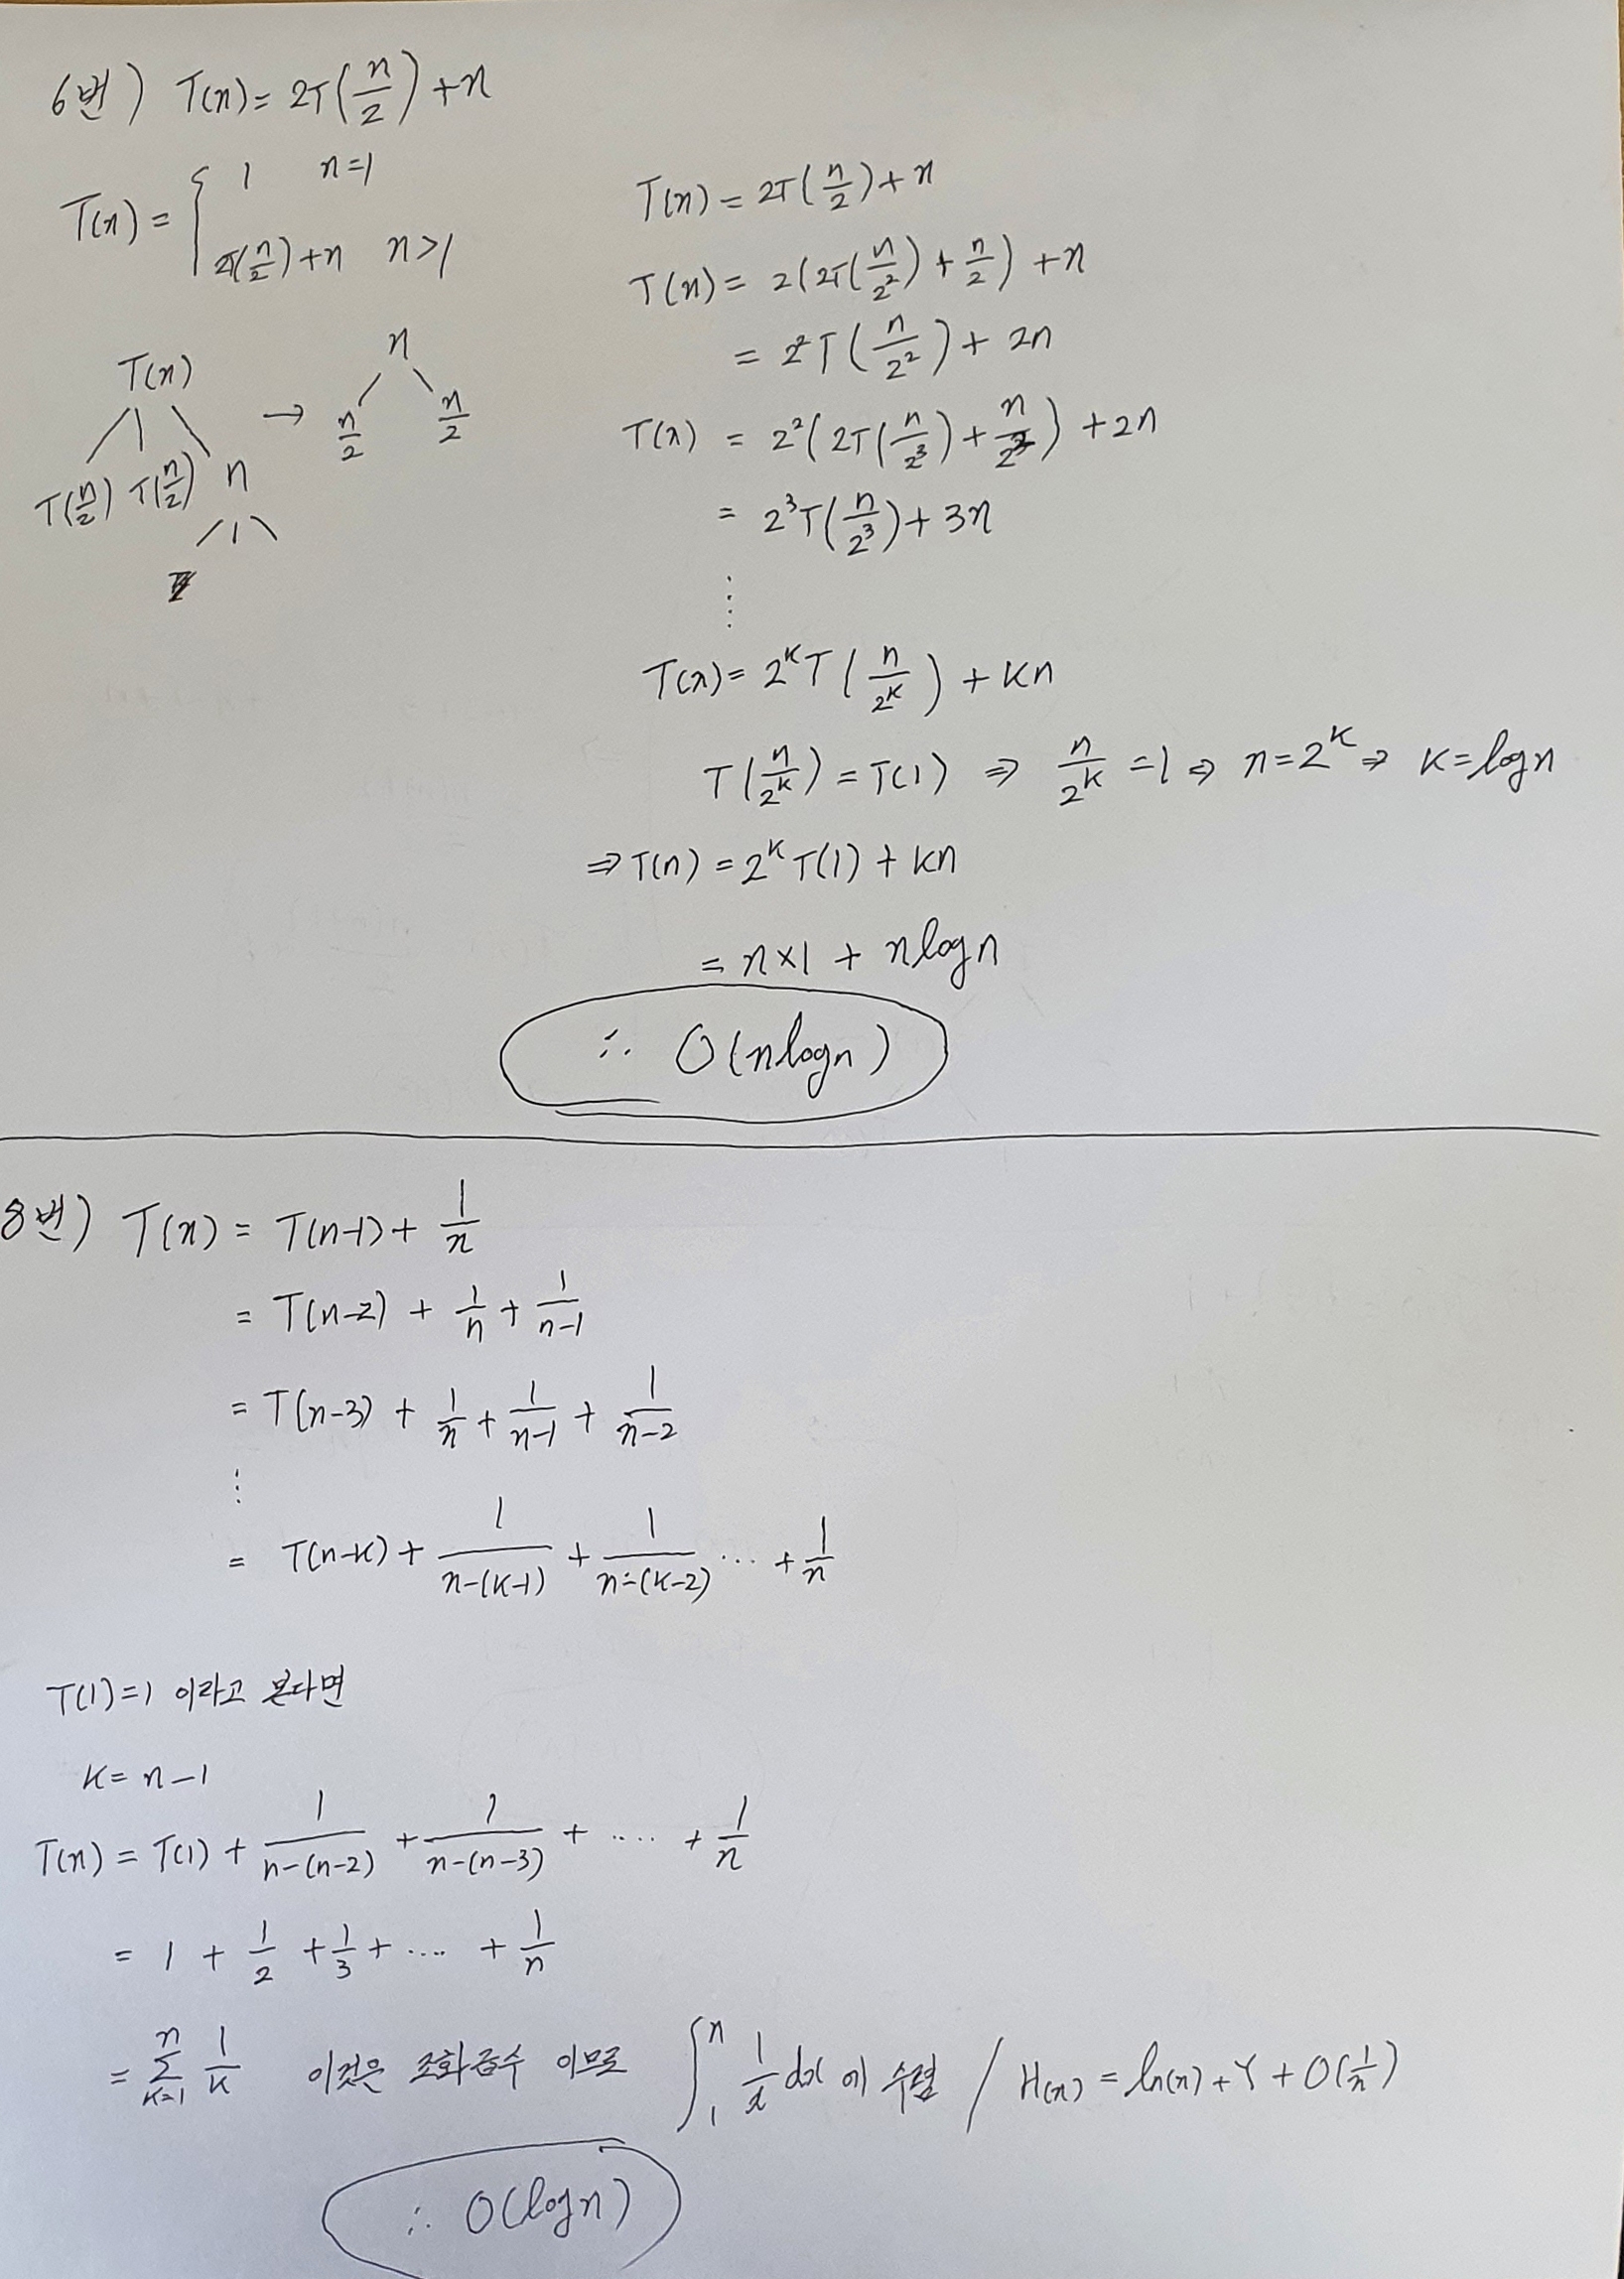 6번) T(n) = 2T(n/2) + n
T(n) = { 1 n=1
2T(n/2)+n n>1
T(n) → n
n/2 n/2
T(n/2) T(n/2) n
T(n) = 2T(n/2) + n
T(n) = 2(2T(n/2²) + n/2) + n
= 2²T(n/2²) + 2n
T(n) = 2²(2T(n/2³) + n/2²) + 2n
= 2³T(n/2³) + 3n
⋮
T(n) = 2^k T(n/2^k) + kn
T(n/2^k) = T(1) ⇒ n/2^k = 1 ⇒ n = 2^k ⇒ k = log n
⇒ T(n) = 2^k T(1) + kn
= n×1 + n log n
∴ O(n log n)
8번) T(n) = T(n-1) + 1/n
= T(n-2) + 1/n + 1/(n-1)
= T(n-3) + 1/n + 1/(n-1) + 1/(n-2)
⋮
= T(n-k) + 1/(n-(k-1)) + 1/(n-(k-2)) ... + 1/n
T(1)=1 이라고 본다면
k = n-1
T(n) = T(1) + 1/(n-(n-2)) + 1/(n-(n-3)) + .... + 1/n
= 1 + 1/2 + 1/3 + .... + 1/n
= Σ_{k=1}^{n} 1/k 이것은 조화급수 이므로 ∫_1^n 1/x dx 에 수렴 / H(n) = ln(n) + γ + O(1/n)
∴ O(log n)